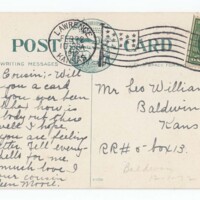 POST CARD
LAWRENCE
KANS.
WRITING MESSAGES
Cousin:- Will
you a card
you ever been
When how is
body out there
well I hope.
you are feeling
better. Tell every-
hello for me
much love I
our cousin
en Moore.
Mr Leo William
Baldwin
Kans
RR#5-box 13.
Baldwin